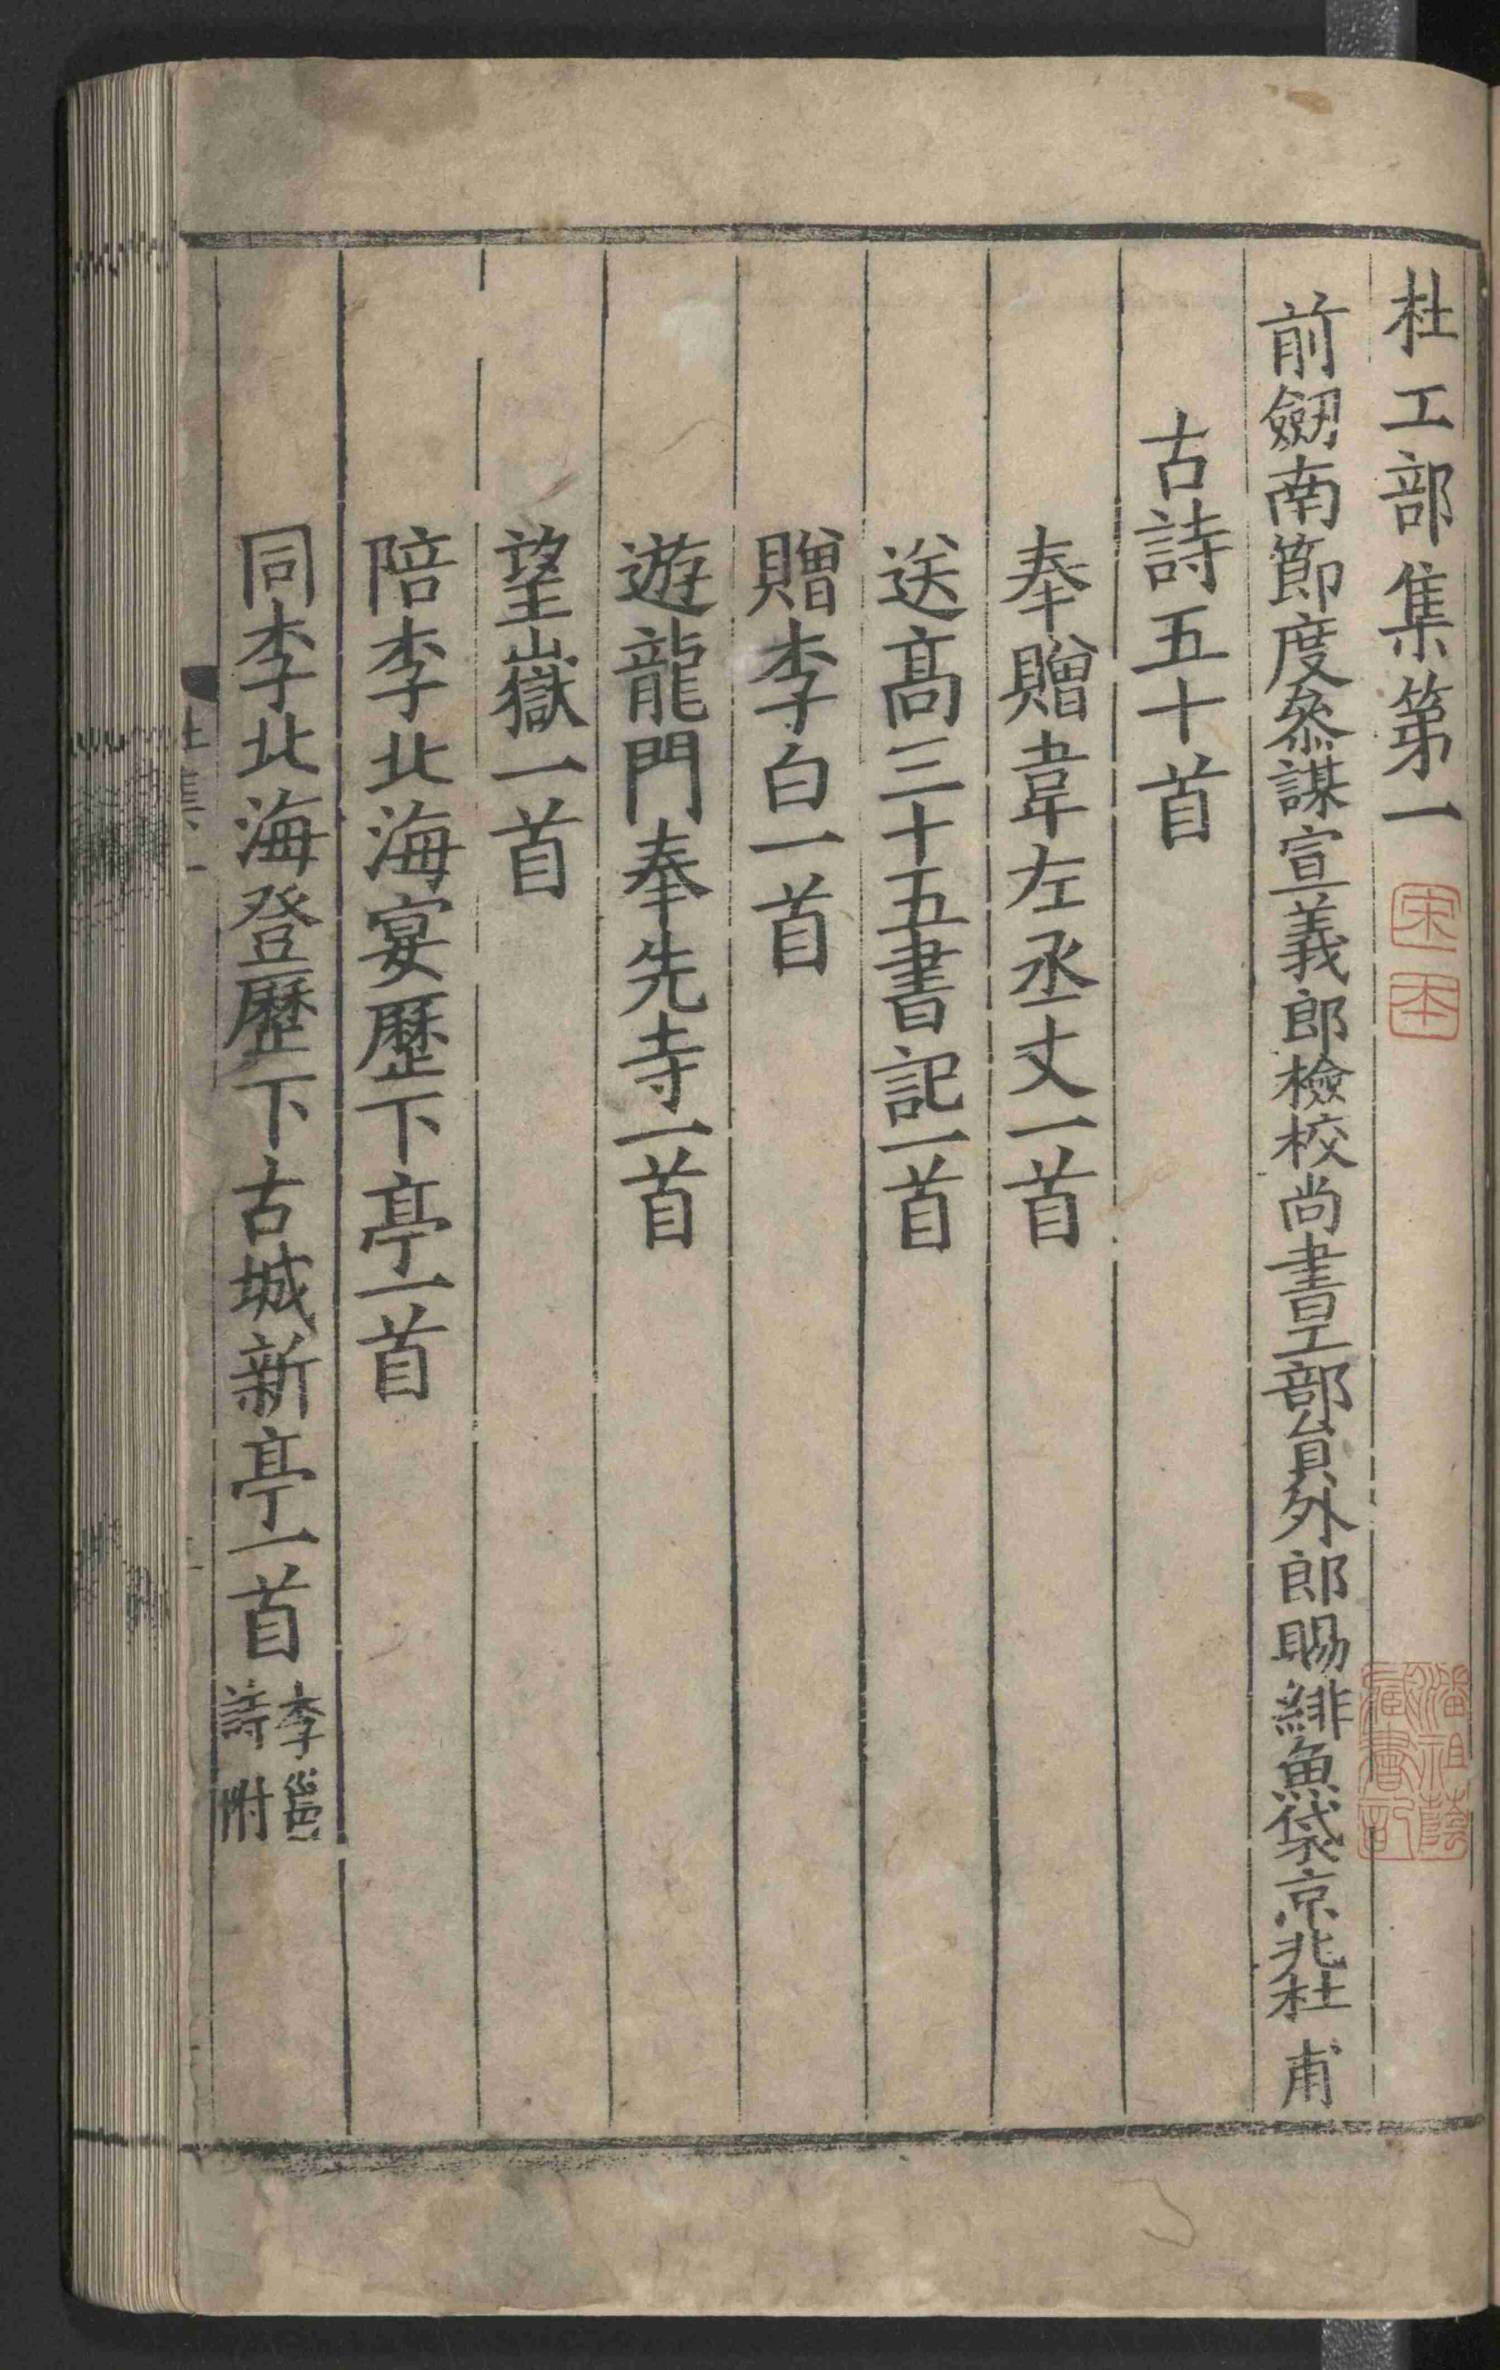 杜工部集第一
宋本
潘祖蔭
藏書記
前劒南節度叅謀宣義郎檢校尚書工部員外郎賜緋魚袋京兆杜甫
古詩五十首
奉贈韋左丞丈一首
送高三十五書記一首
贈李白一首
遊龍門奉先寺一首
望嶽一首
陪李北海宴歷下亭一首
同李北海登歷下古城新亭一首
李邕
詩附